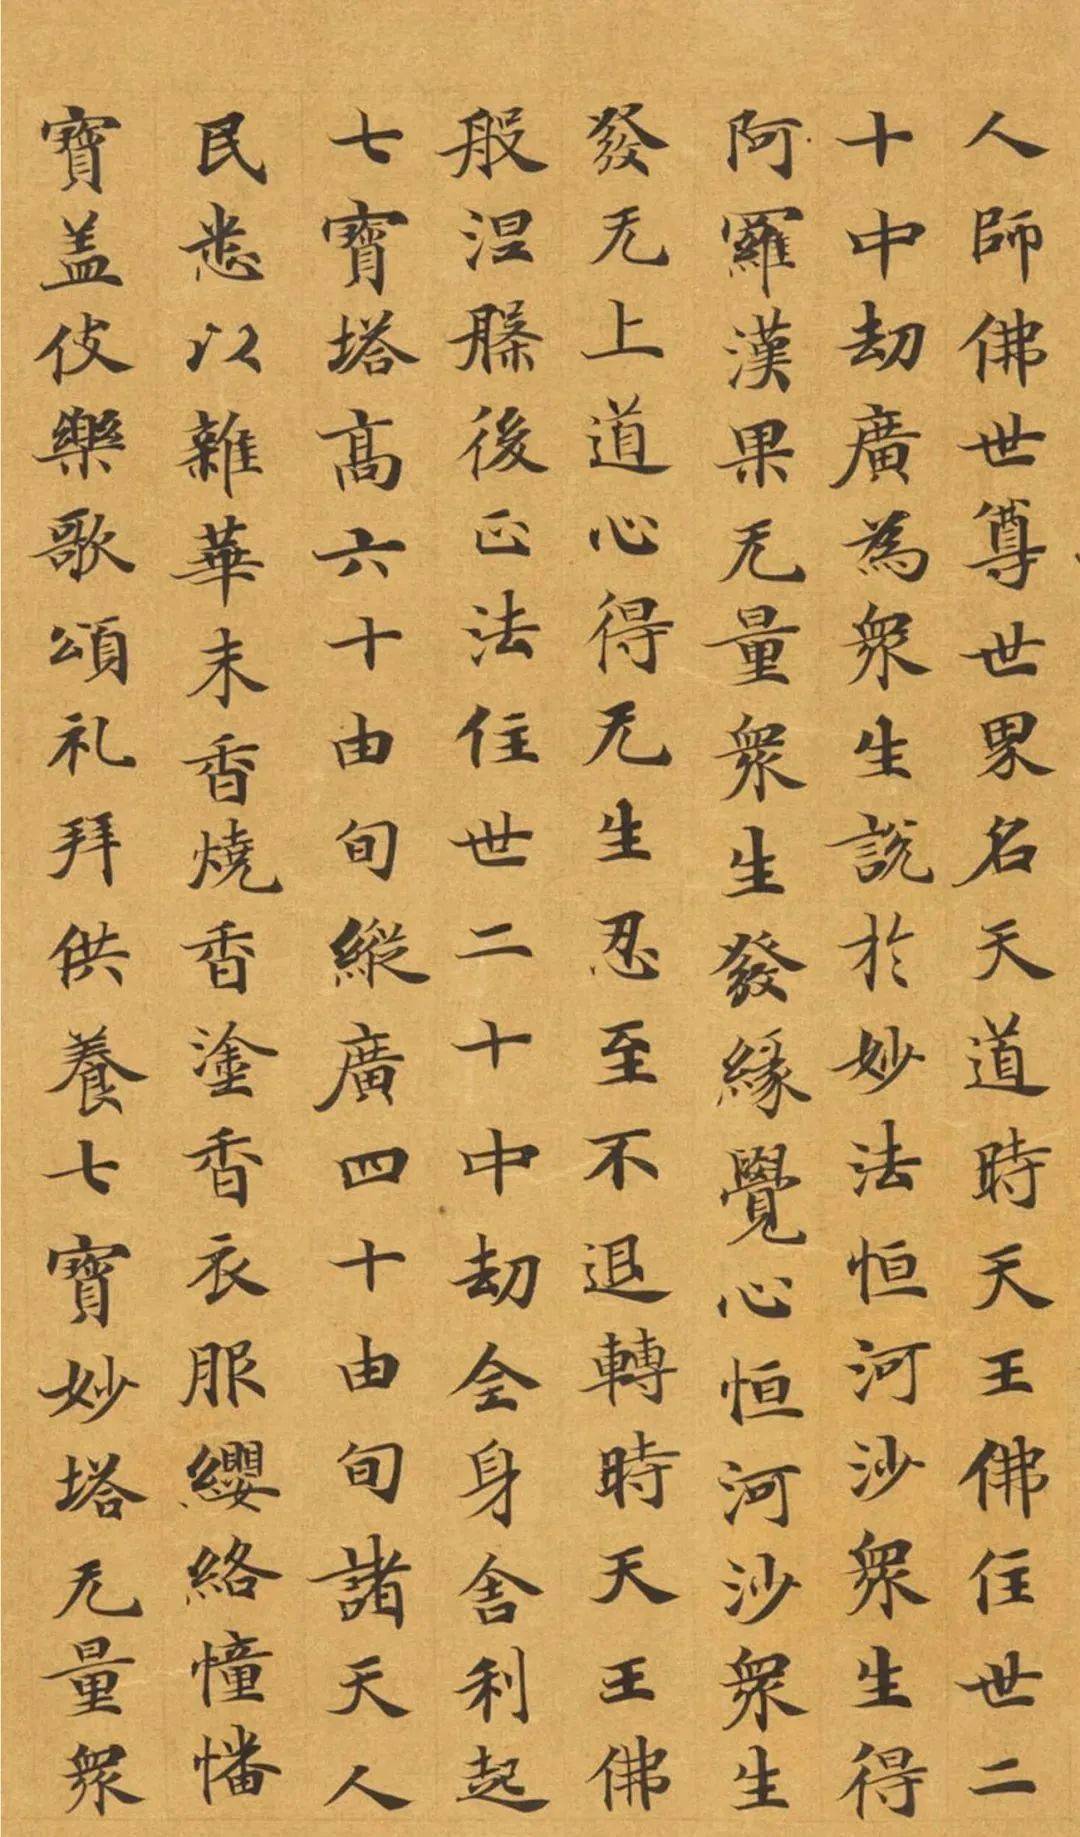 人師佛世尊世界名天道時天王佛住世二
十中劫廣為衆生說於妙法恒河沙衆生得
阿羅漢果无量衆生發緣覺心恒河沙衆生
發无上道心得无生忍至不退轉時天王佛
般涅槃後正法住世二十中劫全身舍利起
七寶塔高六十由旬縱廣四十由旬諸天人
民悉以雜華末香燒香塗香衣服纓絡幢幡
寶盖伎樂歌頌礼拜供養七寶妙塔无量衆